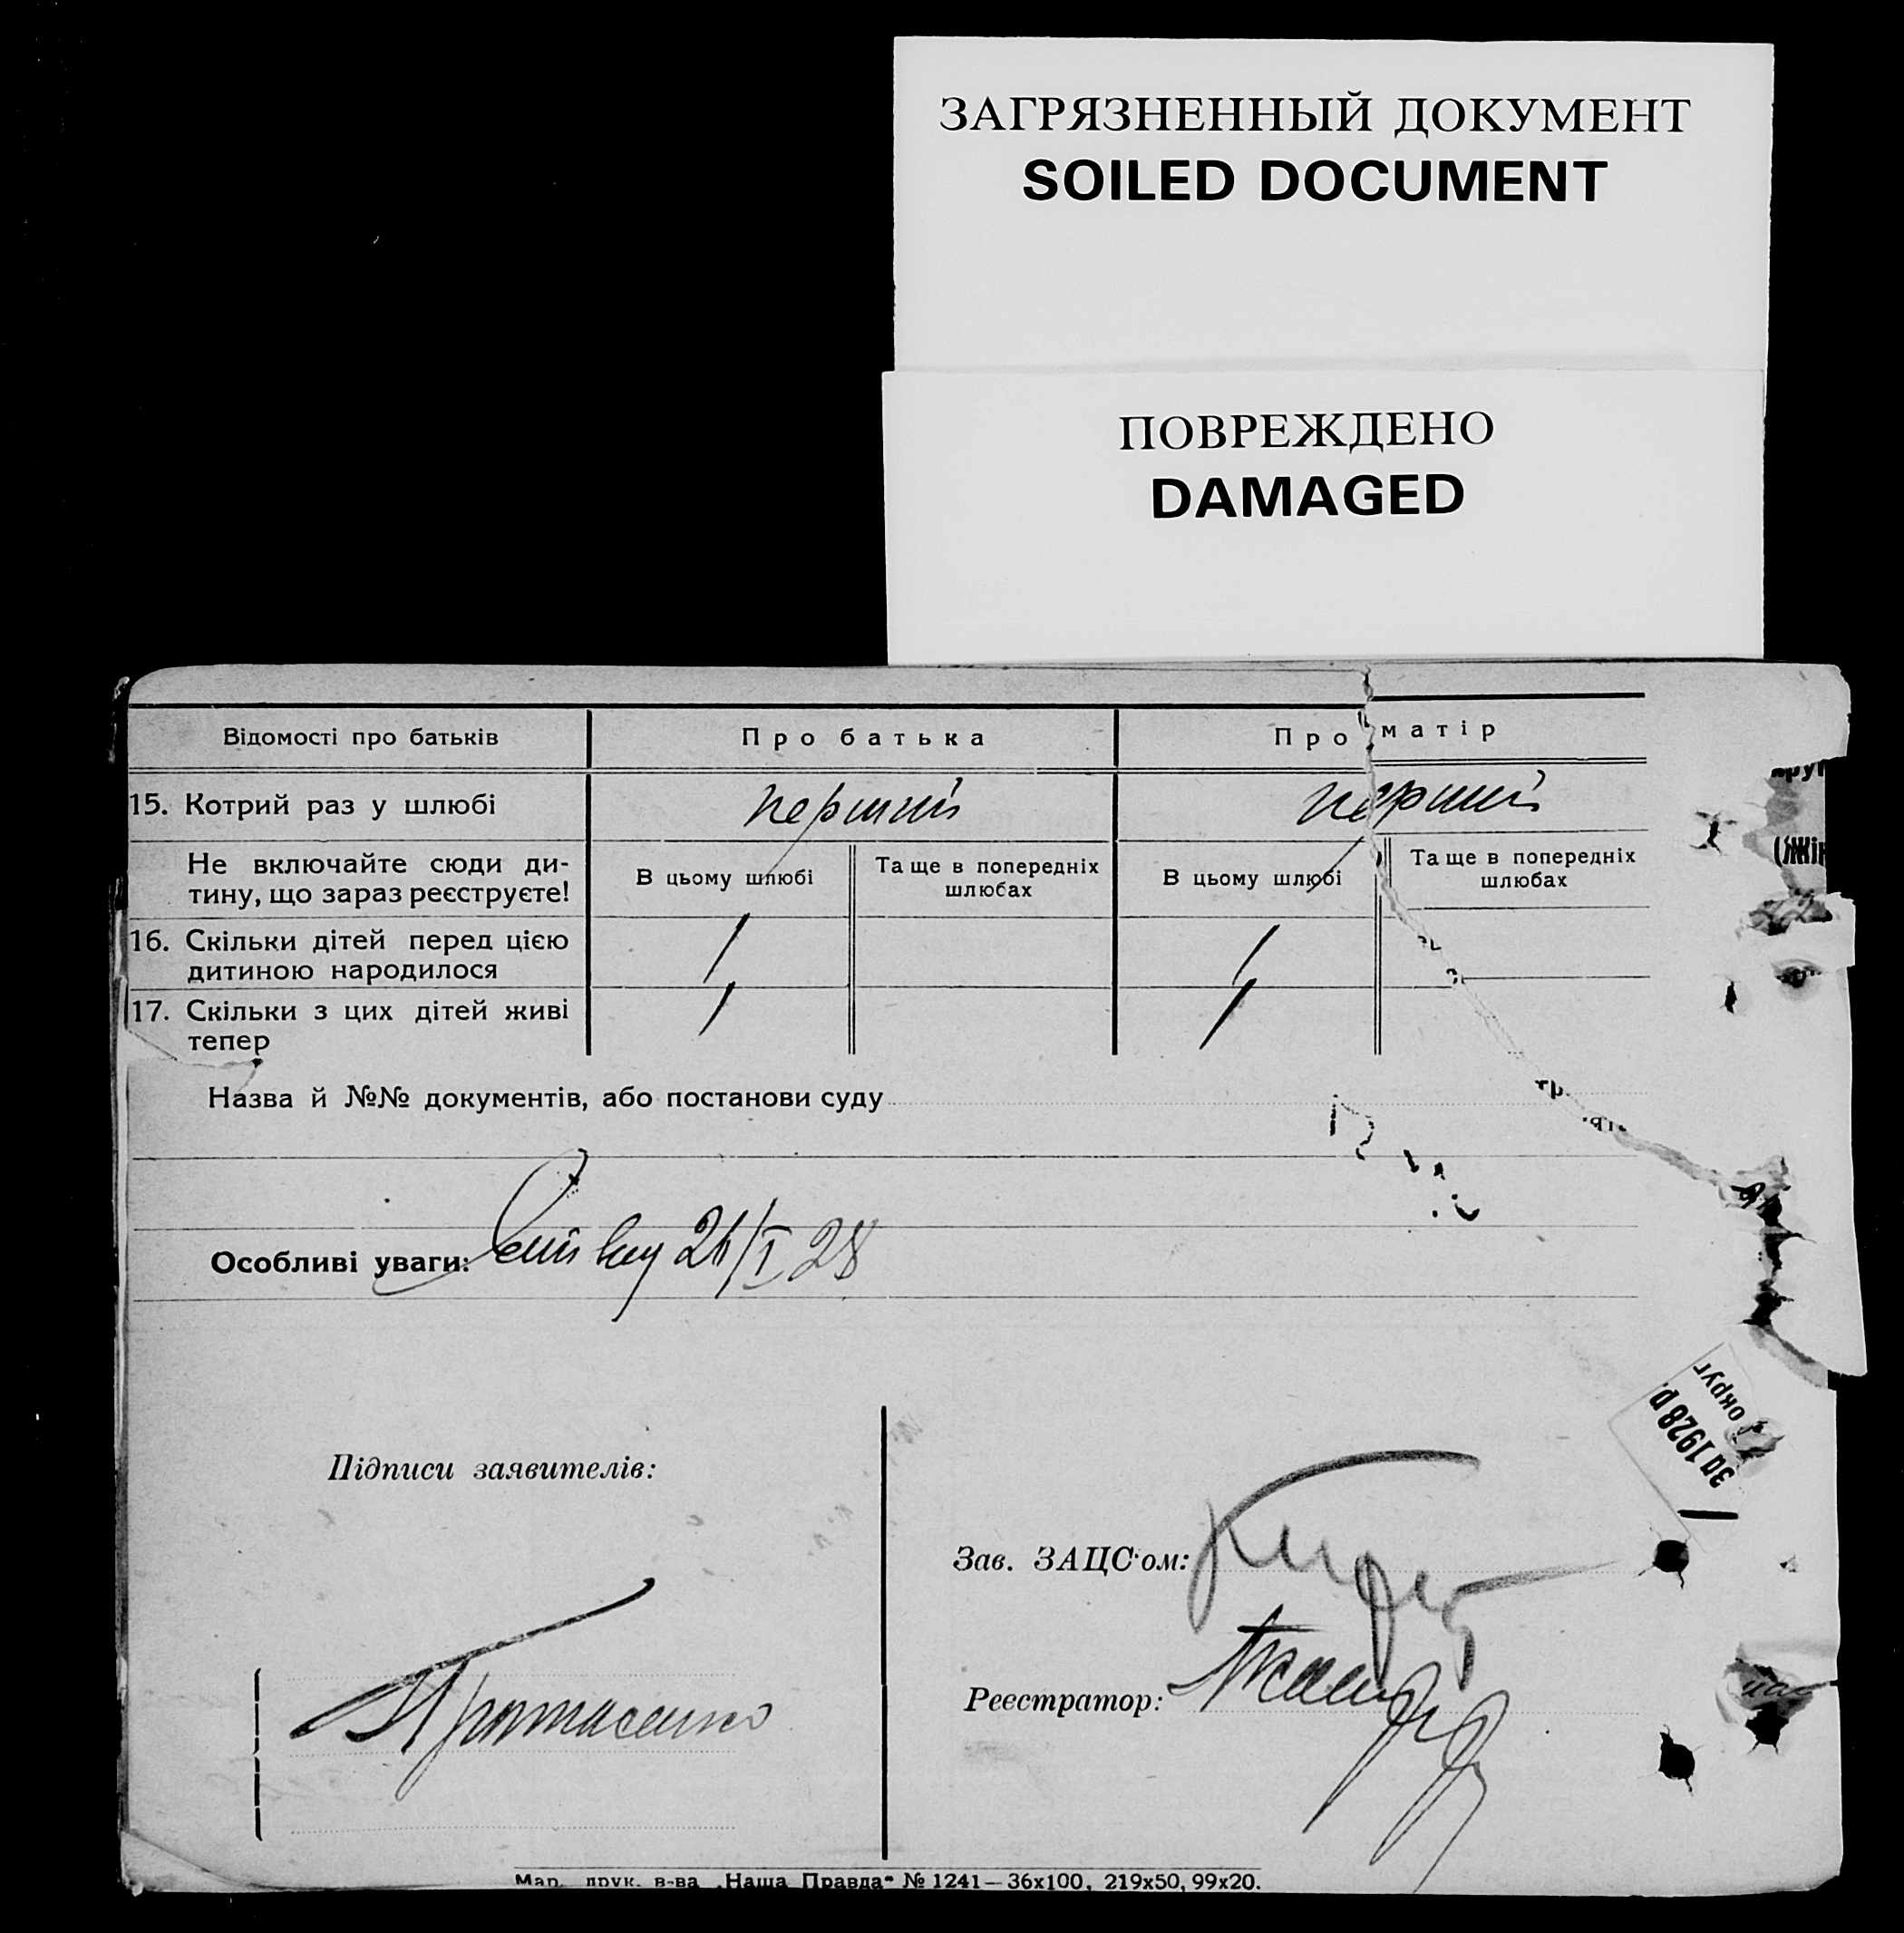 ЗАГРЯЗНЕННЫЙ ДОКУМЕНТ
SOILED DOCUMENT
ПОВРЕЖДЕНО
DAMAGED
Відомості про батьків
Про батька
Про матір
15. Котрий раз у шлюбі
перший
перший
Не включайте сюди ди-
тину, що зараз реєструєте!
В цьому шлюбі
Та ще в попередніх
шлюбах
В цьому шлюбі
Та ще в попередніх
шлюбах
16. Скільки дітей перед цією
дитиною народилося
/
/
17. Скільки з цих дітей живі
тепер
/
/
Назва й №№ документів, або постанови суду
Особливі уваги:
26/I 28
за 1928 р.
округ
Підписи заявителів:
Зав. ЗАЦС'ом:
Протасенко
Реєстратор:
Мар. друк. в-ва „Наша Правда“ № 1241—36х100, 219х50, 99х20.